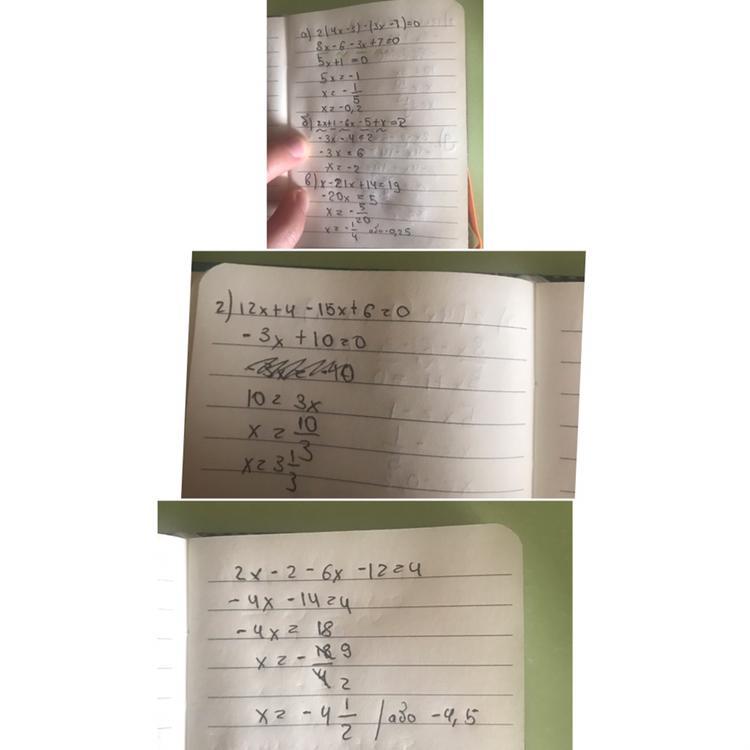 а) 2(4x-3)-(3x-7)=0
8x-6-3x+7=0
5x+1=0
5x=-1
x=-1/5
x=-0,2
б) 2x+1-6x-5+x=2
-3x-4=2
-3x=6
x=-2
в) x-21x+14=19
-20x=5
x=-5/20
x=-1/4 або -0,25
г) 12x+4-15x+6=0
-3x+10=0
10=3x
x=10/3
x=3 1/3
2x-2-6x-12=4
-4x-14=4
-4x=18
x=-18/4 9/2
x=-4 1/2 / або -4,5